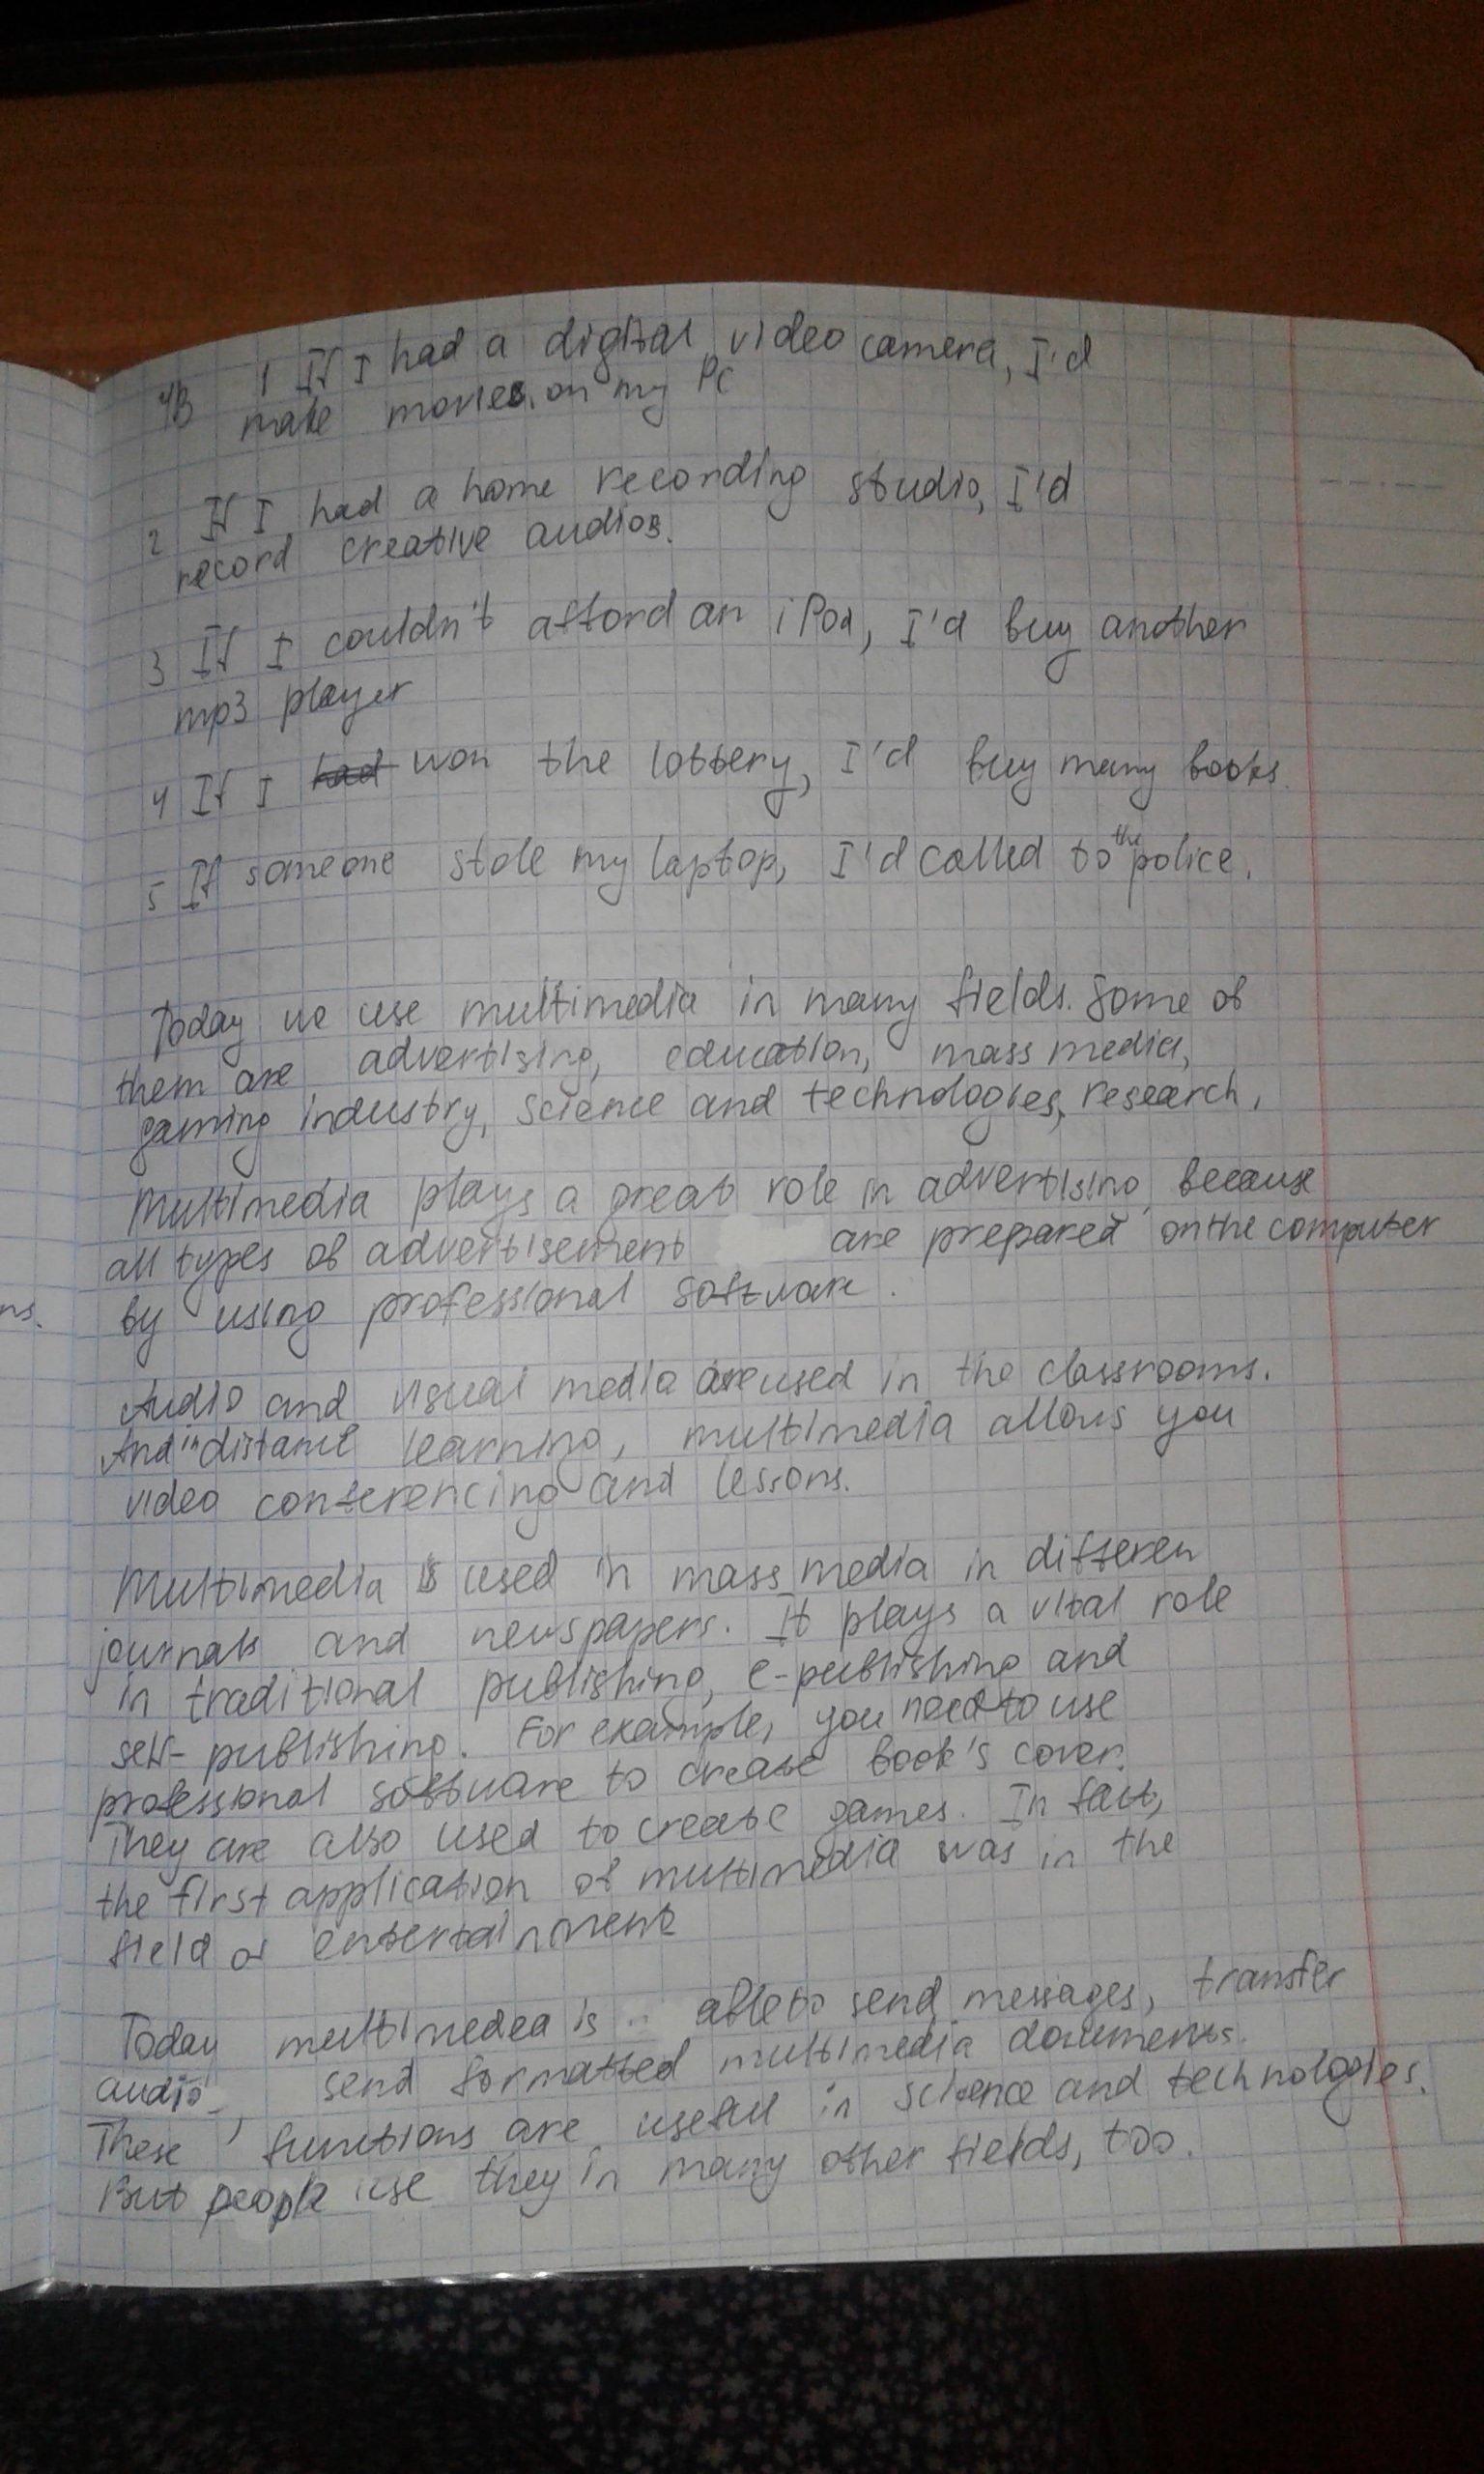 4B 1 If I had a digital video camera, I'd
make movies on my PC
2 If I had a home recording studio, I'd
record creative audios.
3 If I couldn't afford an iPod, I'd buy another
mp3 player
4 If I had won the lottery, I'd buy many books.
5 If someone stole my laptop, I'd called to the police.
Today we use multimedia in many fields. Some of
them are advertising, education, mass media,
gaming industry, science and technologies, research.
Multimedia plays a great role in advertising, because
all types of advertisement are prepared on the computer
by using professional software.
ns.
Audio and visual media are used in the classrooms.
And in distance learning, multimedia allows you
video conferencing and lessons.
Multimedia is used in mass media in differen
journals and newspapers. It plays a vital role
in traditional publishing, e-publishing and
self-publishing. For example, you need to use
professional software to create book's cover.
They are also used to create games. In fact,
the first application of multimedia was in the
field of entertainment
Today multimedea is able to send messages, transfer
audio, send formatted multimedia documents.
These functions are useful in science and technologies.
But people use they in many other fields, too.